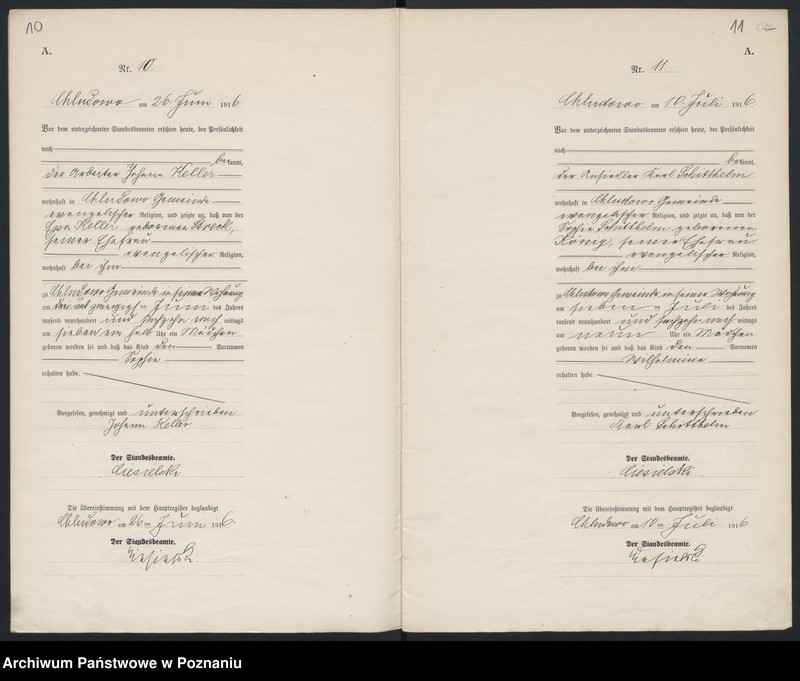 10
A.
Nr. 10.
Chludowo am 26. Juni 1916
Vor dem unterzeichneten Standesbeamten erschien heute, der Persönlichkeit
nach
bekannt,
der Arbeiter Johann Keller
wohnhaft in Chludowo Gemeinde
evangelischer Religion, und zeigte an, daß von der
Eva Keller geborenen
seiner Ehefrau
evangelischer Religion,
wohnhaft bei ihm
zu Chludowo Gemeinde in seiner Wohnung
am drei und zwanzigsten Juni des Jahres
tausend neunhundert und sechzehn nachmittags
um sieben ein halb Uhr ein Mädchen
geboren worden sei und daß das Kind den Vornamen
Sophie
erhalten habe.
Vorgelesen, genehmigt und unterschrieben
Johann Keller
Der Standesbeamte.
Ciesielski
Die Übereinstimmung mit dem Hauptregister beglaubigt
Chludowo am 26ten Juni 1916.
Der Standesbeamte.
Ciesielski
11
A.
Nr. 11
Chludowo am 10. Juli 1916
Vor dem unterzeichneten Standesbeamten erschien heute, der Persönlichkeit
nach
bekannt,
der Ansiedler Karl Schütthelm
wohnhaft in Chludowo Gemeinde
evangelischer Religion, und zeigte an, daß von der
Sophie Schütthelm geborenen
König, seiner Ehefrau
evangelischer Religion,
wohnhaft bei ihm
zu Chludowo Gemeinde in seiner Wohnung
am sieben Juli des Jahres
tausend neunhundert und sechzehn nachmittags
um neun Uhr ein Mädchen
geboren worden sei und daß das Kind den Vornamen
Wilhelmine
erhalten habe.
Vorgelesen, genehmigt und unterschrieben
Karl Schütthelm
Der Standesbeamte.
Ciesielski
Die Übereinstimmung mit dem Hauptregister beglaubigt
Chludowo am 10ten Juli 1916
Der Standesbeamte.
Ciesielski
Archiwum Państwowe w Poznaniu